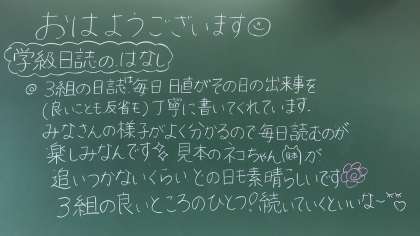 おはようございます
学級日誌のはなし
@ 3組の日誌は毎日 日直がその日の出来事を
(良いことも反省も)丁寧に書いてくれています.
みなさんの様子がよく分かるので毎日読むのが
楽しみなんです 見本のネコちゃん( )が
追いつかないくらい どの日も素晴らしいです
3組の良いところのひとつ!続いていくといいな〜